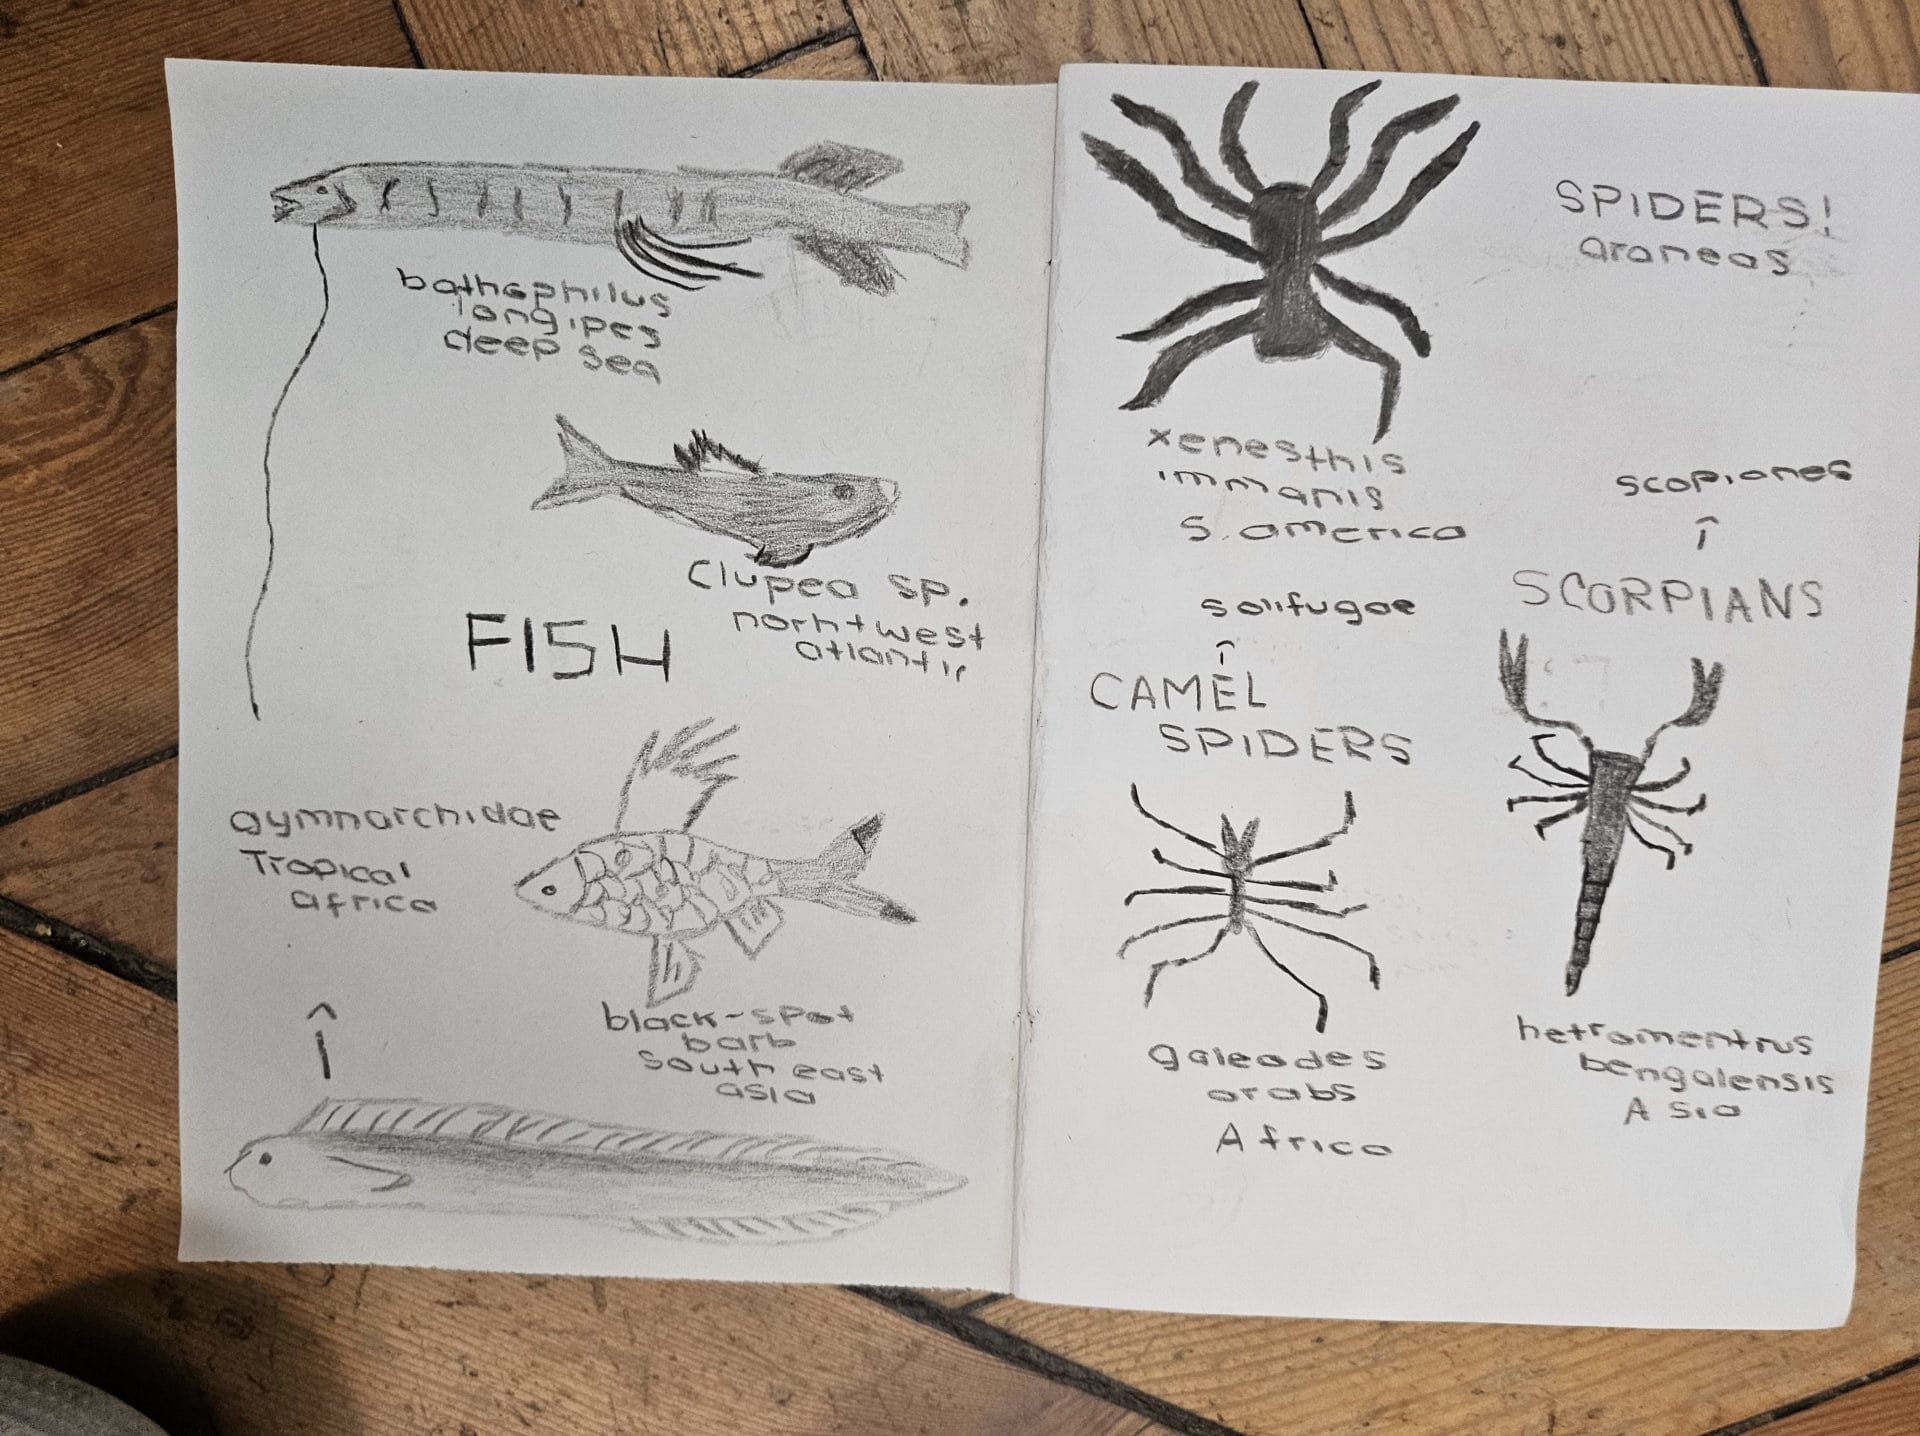 bathophilus
longipes
deep sea
Clupea sp.
norhtwest
atlantic
FISH
gymnarchidae
Tropical
africa
black-spot
barb
south east
asia
SPIDERS!
araneas
xenesthis
immanis
S. america
scopiones
SCORPIANS
solifugae
CAMEL
SPIDERS
galeodes
arabs
Africa
hetromentrus
bengalensis
Asia